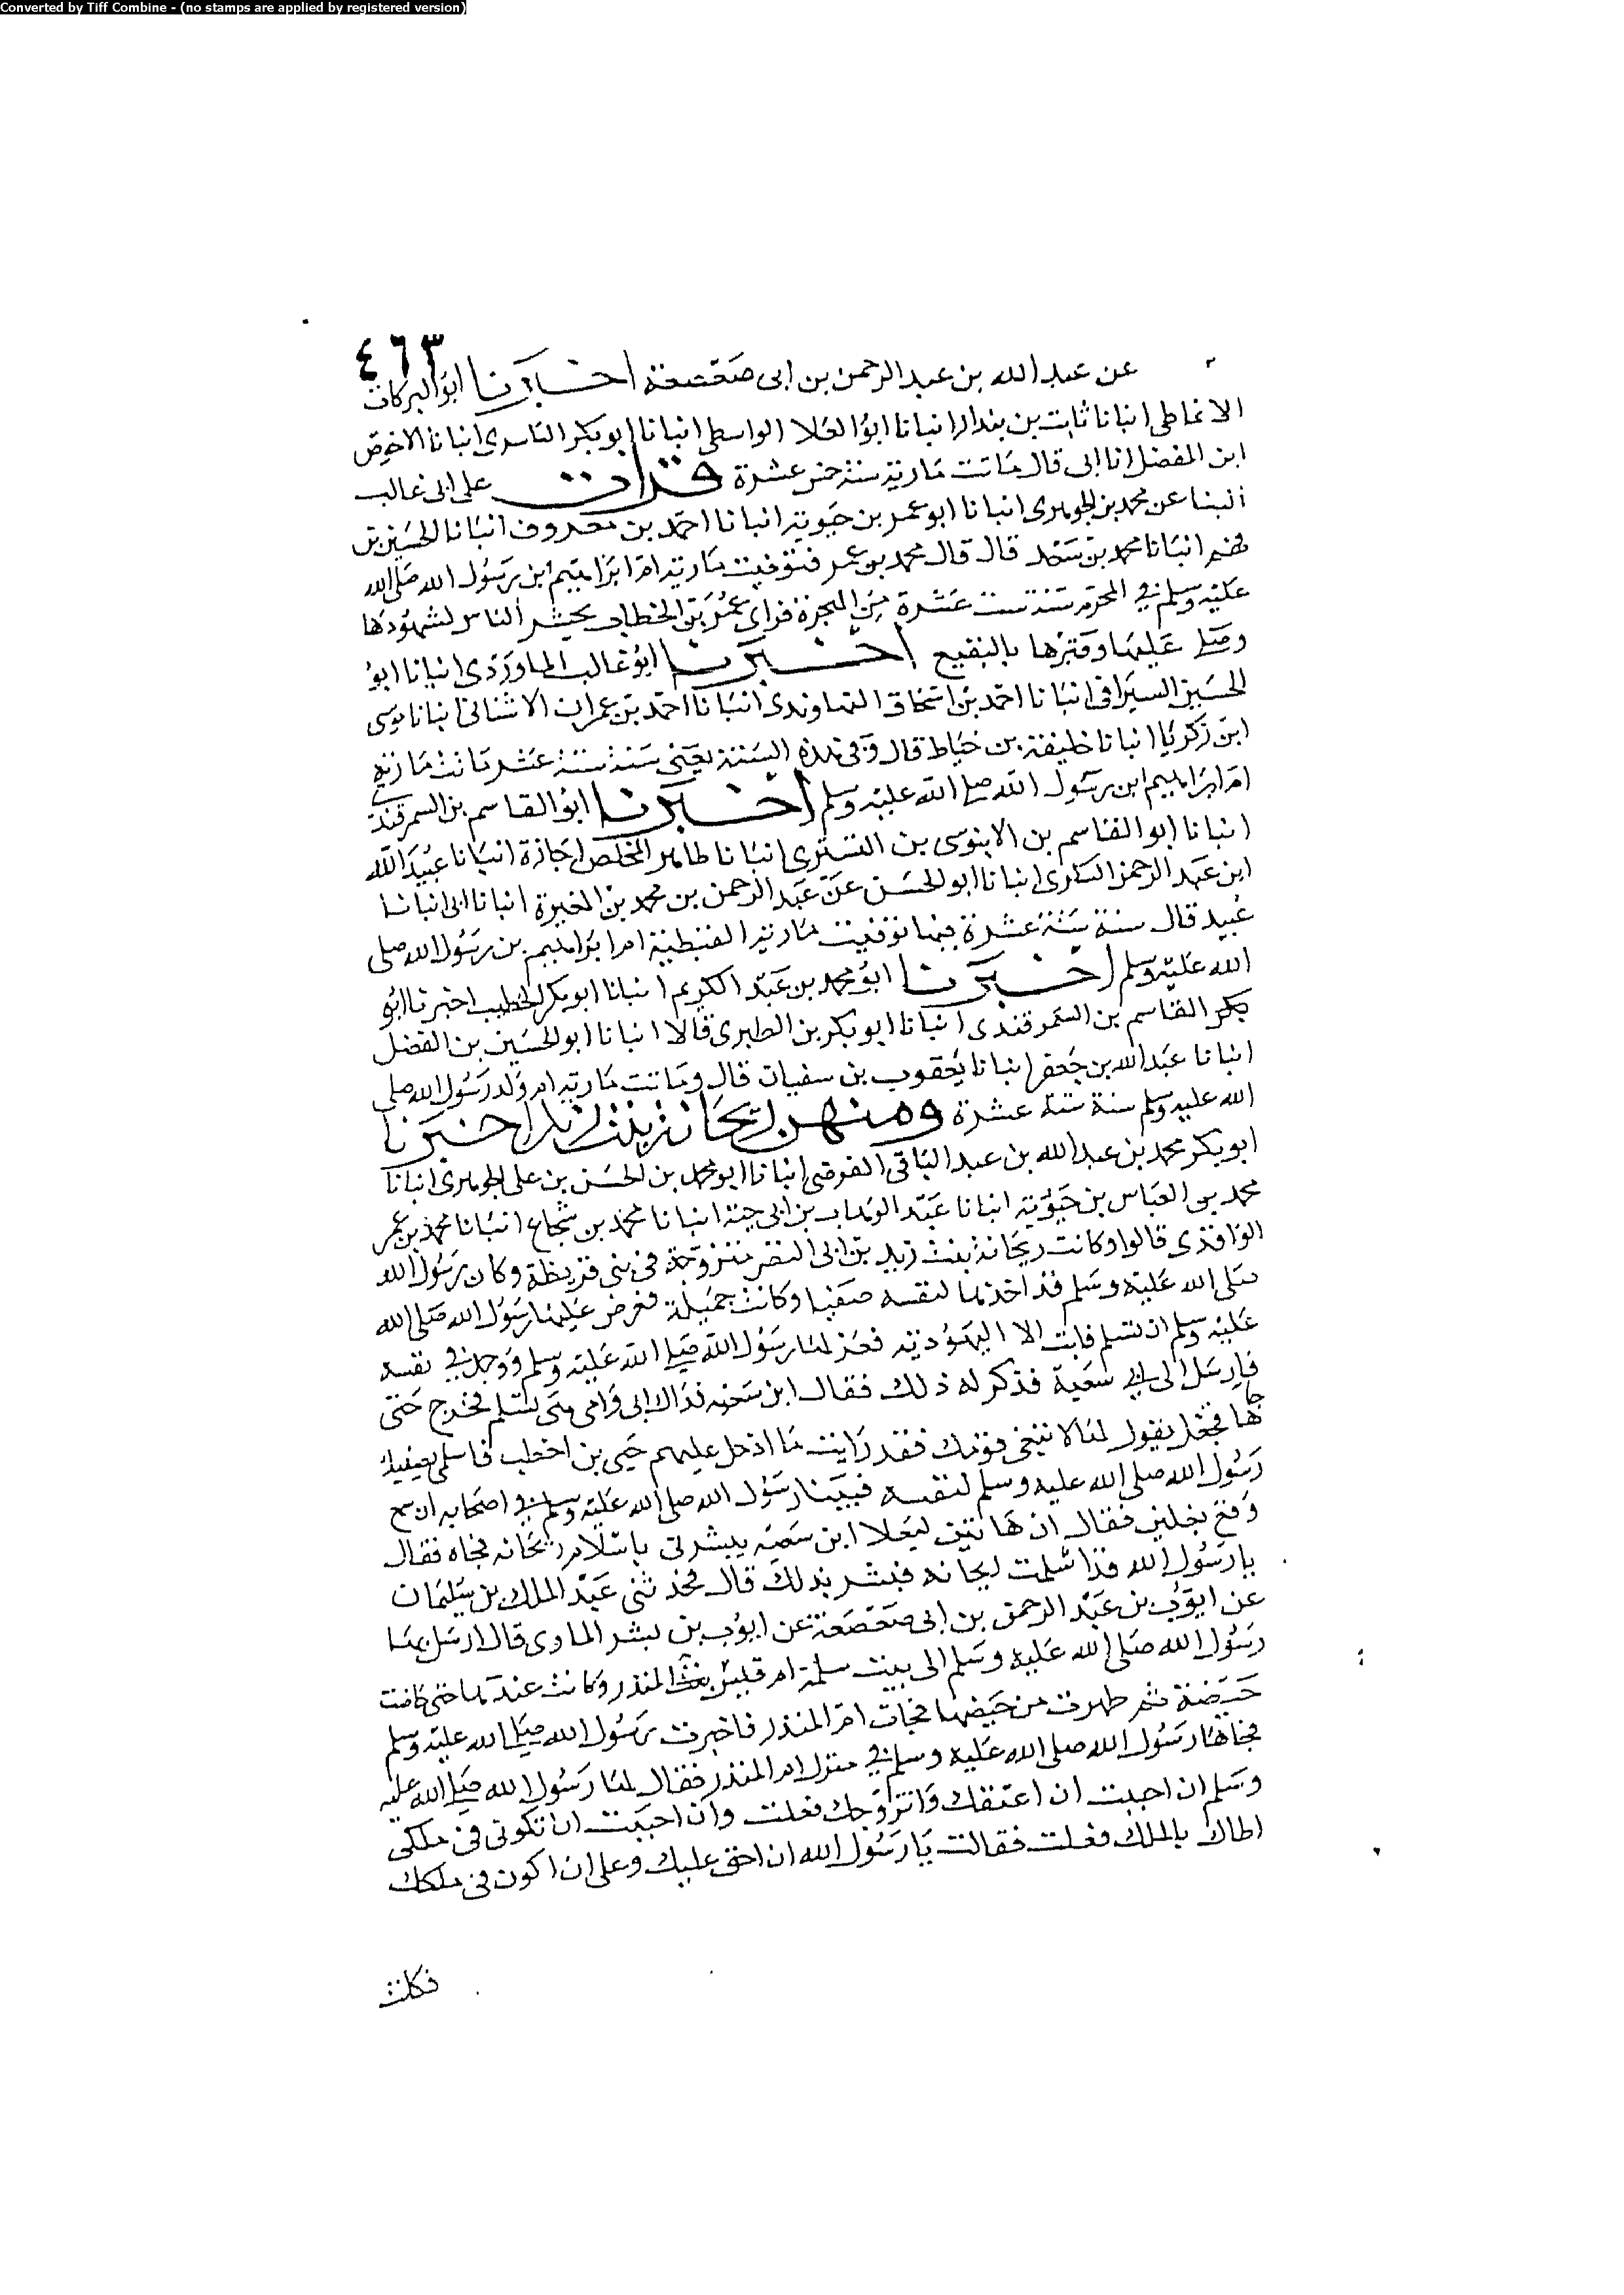 Converted by Tiff Combine - (no stamps are applied by registered version)
٤٦٣
عن عبد الله بن عبد الرحمن بن ابى صعصعة اخبرنا ابو البركات
الانماطى انبانا ثابت بن بندار انبانا ابو العلا الواسطى انبانا ابو بكر الناسرى انبانا الاخوص
ابن المفضل انا ابى قال ماتت مارية سنة خمس عشرة قرات على ابى غالب
البنا عن محمد بن الجوهرى انبانا ابو عمر بن حيوية انبانا احمد بن معروف انبانا الحسين بن
فهم انبانا محمد بن سعد قال قال محمد بن عمر فتوفيت مارية ام ابراهيم ابن رسول الله صلى الله
عليه وسلم في المحرم سنة ست عشرة من الهجرة فراى عمر بن الخطاب يحشر الناس لشهودها
وصلى عليها وقبرها بالبقيع اخبرنا ابو غالب الماوردى انبانا ابو
الحسين السيرافى انبانا احمد بن اسحاق النهاوندى انبانا احمد بن عمران الاشنانى انبانا موسى
ابن زكريا انبانا خليفة بن خياط قال وفى هذه السنة يعنى سنة ستة عشر ماتت مارية
ام ابراهيم ابن رسول الله صلى الله عليه وسلم اخبرنا ابو القاسم بن السمرقندى
انبانا ابو القاسم بن الابنوسى بن التسترى انبانا طاهر المخلص اجازة انبانا عبيد الله
ابن عبد الرحمن السكرى انبانا ابو الحسن عن عبد الرحمن بن محمد بن المغيرة انبانا ابى انبانا
عبيد قال سنة ستة عشرة فيها توفيت مارية القبطية ام ابراهيم بن رسول الله صلى
الله عليه وسلم اخبرنا ابو محمد بن عبد الكريم انبانا ابو بكر الخطيب اخبرنا ابو
بكر القاسم بن السمرقندى انبانا ابو بكر بن الطبرى قالا انبانا ابو الحسين بن الفضل
انبانا عبد الله بن جعفر انبانا يعقوب بن سفيان قال وماتت مارية ام ولد رسول الله صلى
الله عليه وسلم سنة ستة عشرة ومنهن ريحانة بنت زيد اخبرنا
ابو بكر محمد بن عبد الله بن عبد الباقى الفرضى انبانا ابو محمد بن الحسن بن على الجوهرى انبانا
محمد بن العباس بن حيوية انبانا عبد الوهاب بن ابى حية انبانا محمد بن شجاع انبانا محمد بن عمر
الواقدى قالوا وكانت ريحانة بنت زيد بن ابى النضر متزوجة فى بنى قريظة وكان رسول الله
صلى الله عليه وسلم قد اخذها لنفسه صفيا وكانت جميلة فعرض عليها رسول الله صلى الله
عليه وسلم ان تسلم فابت الا اليهودية فعزلها رسول الله صلى الله عليه وسلم ووجد في نفسه
فارسل الى ابي سعية فذكر له ذلك فقال ابن سعيه فداك ابى وامى هى تسلم فخرج حتى
جاها فجعل يقول لها لا تتبعى قومك فقد رايت ما ادخل عليهم حيى بن اخطب فاسلمى يصطفيك
رسول الله صلى الله عليه وسلم لنفسه فبينا رسول الله صلى الله عليه وسلم في اصحابه ان سمع
وقع نعلين فقال ان هاتين لنعلا ابن سعيه يبشرنى باسلام ريحانه فجاه فقال
يا رسول الله قد اسلمت ريحانه فبشر بذلك قال فحدثنى عبد الملك بن سليمان
عن ايوب بن عبد الرحمن بن ابى صعصعة عن ايوب بن بشر الماوى قال ارسل بها
رسول الله صلى الله عليه وسلم الى بيت سلمة ام قيس بنت المنذر وكانت عندها حتى حاضت
حيضة ثم طهرت من حيضها فجات ام المنذر فاخبرت رسول الله صلى الله عليه وسلم
فجاها رسول الله صلى الله عليه وسلم في منزل ام المنذر فقال لها رسول الله صلى الله عليه
وسلم ان احببت ان اعتقك واتزوجك فعلت وان احببت ان تكونى فى ملكى
اطاك بالملك فعلت فقالت يا رسول الله ان اخف عليك وعلى ان اكون فى ملكك
فكانت